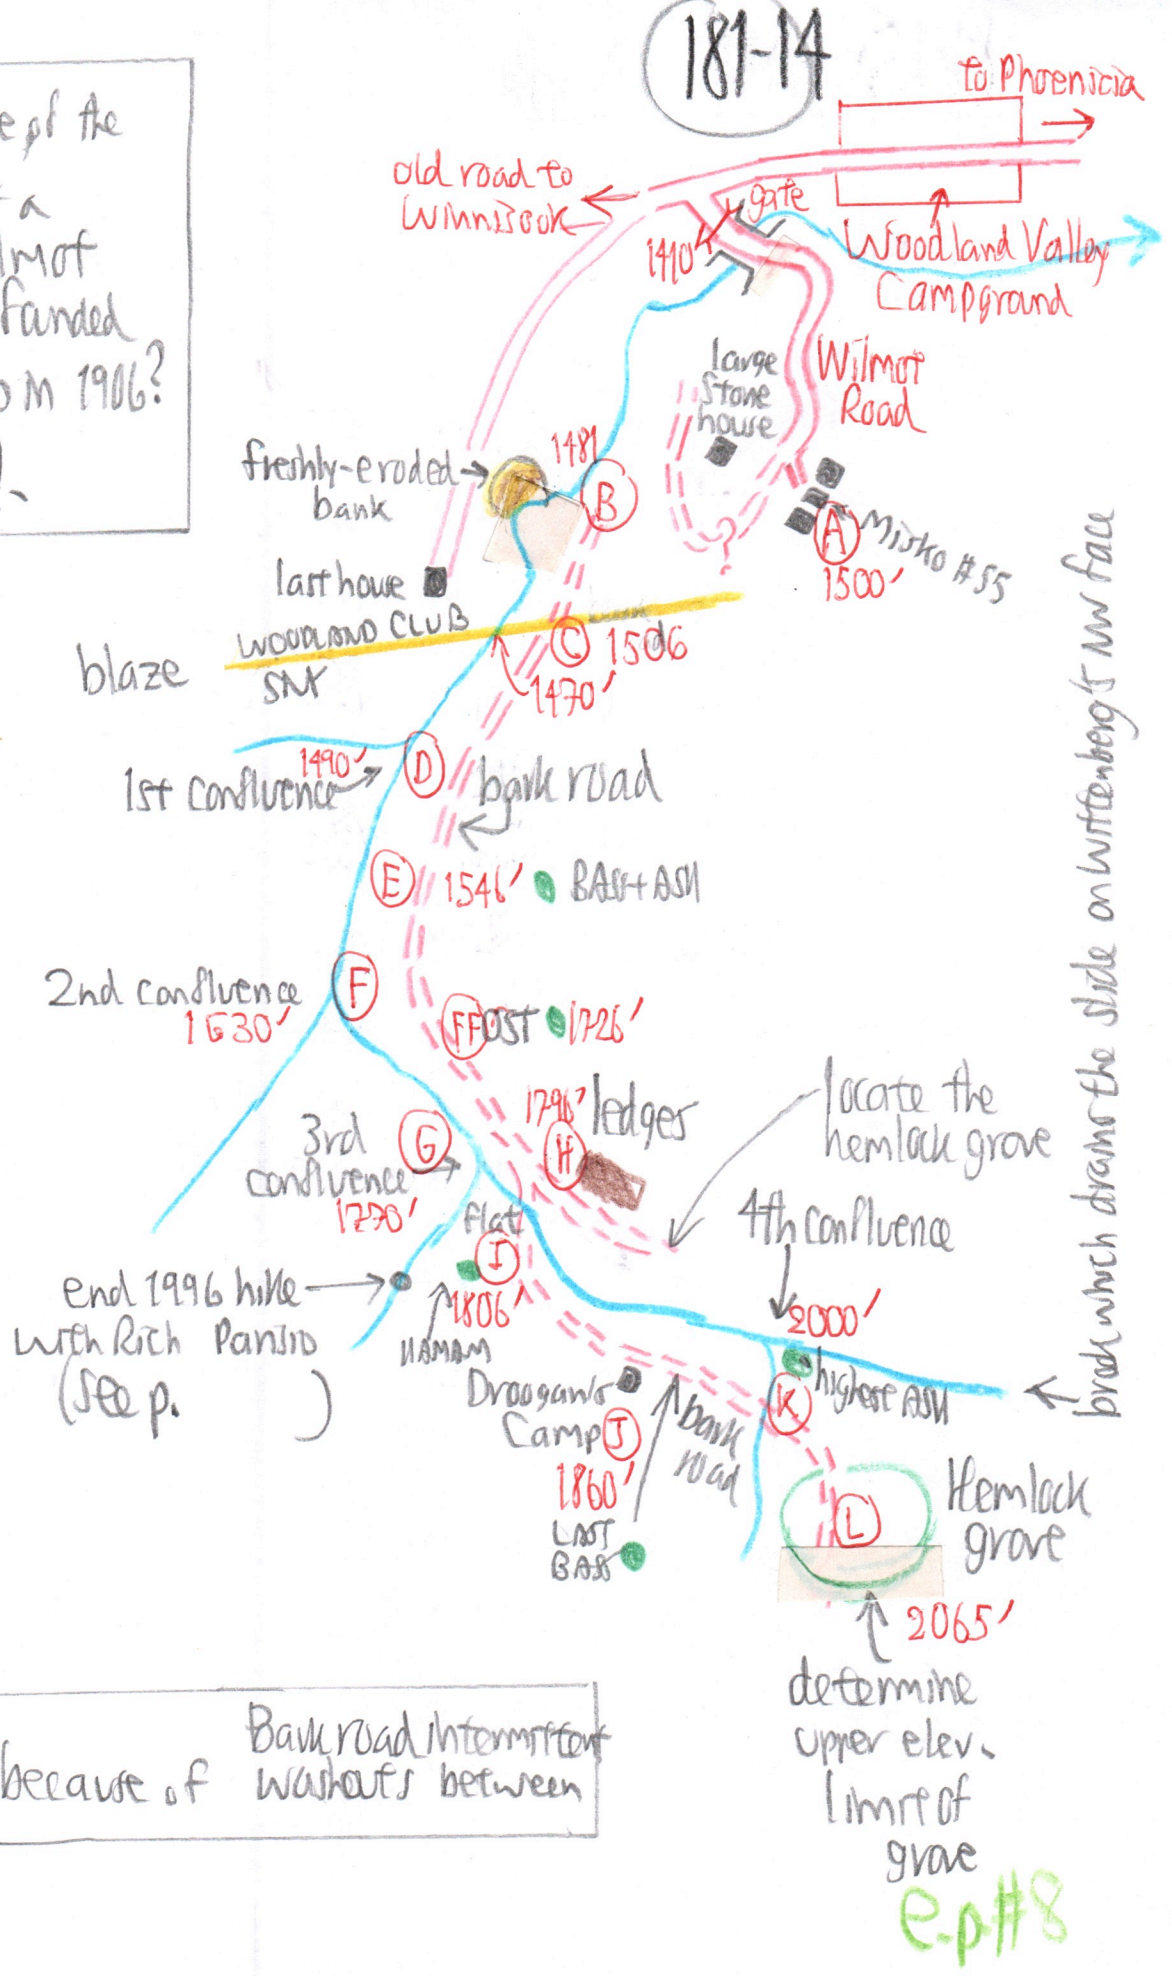 181-14
the
a
lmot
fanded
om 1906?
to Phoenicia
old road to
Winnisook
gate
1410'
Woodland Valley
Campground
large
stone
house
Wilmot
Road
freshly-eroded
bank
1481
B
?
A
Misko #55
1500'
last house
WOODLAND CLUB
SNY
blaze
C 1506
1470'
1490'
1st confluence
D
bark road
E 1546'
2nd confluence
1630'
F
FF OST 1726'
1796' ledges
H
locate the
hemlock grove
3rd
confluence
1770'
G
flat
I
1806'
4th confluence
2000'
end 1996 hike
with Rich
(see p. )
highest ASH
K
Camp J
1860'
bark
road
LAST
BAS
Hemlock
grove
L
2065'
determine
upper elev.
limit of
grove
brook which drains the slide on Wittenberg's NW face
Bark road intermittent
because of washouts between
e.p.#8